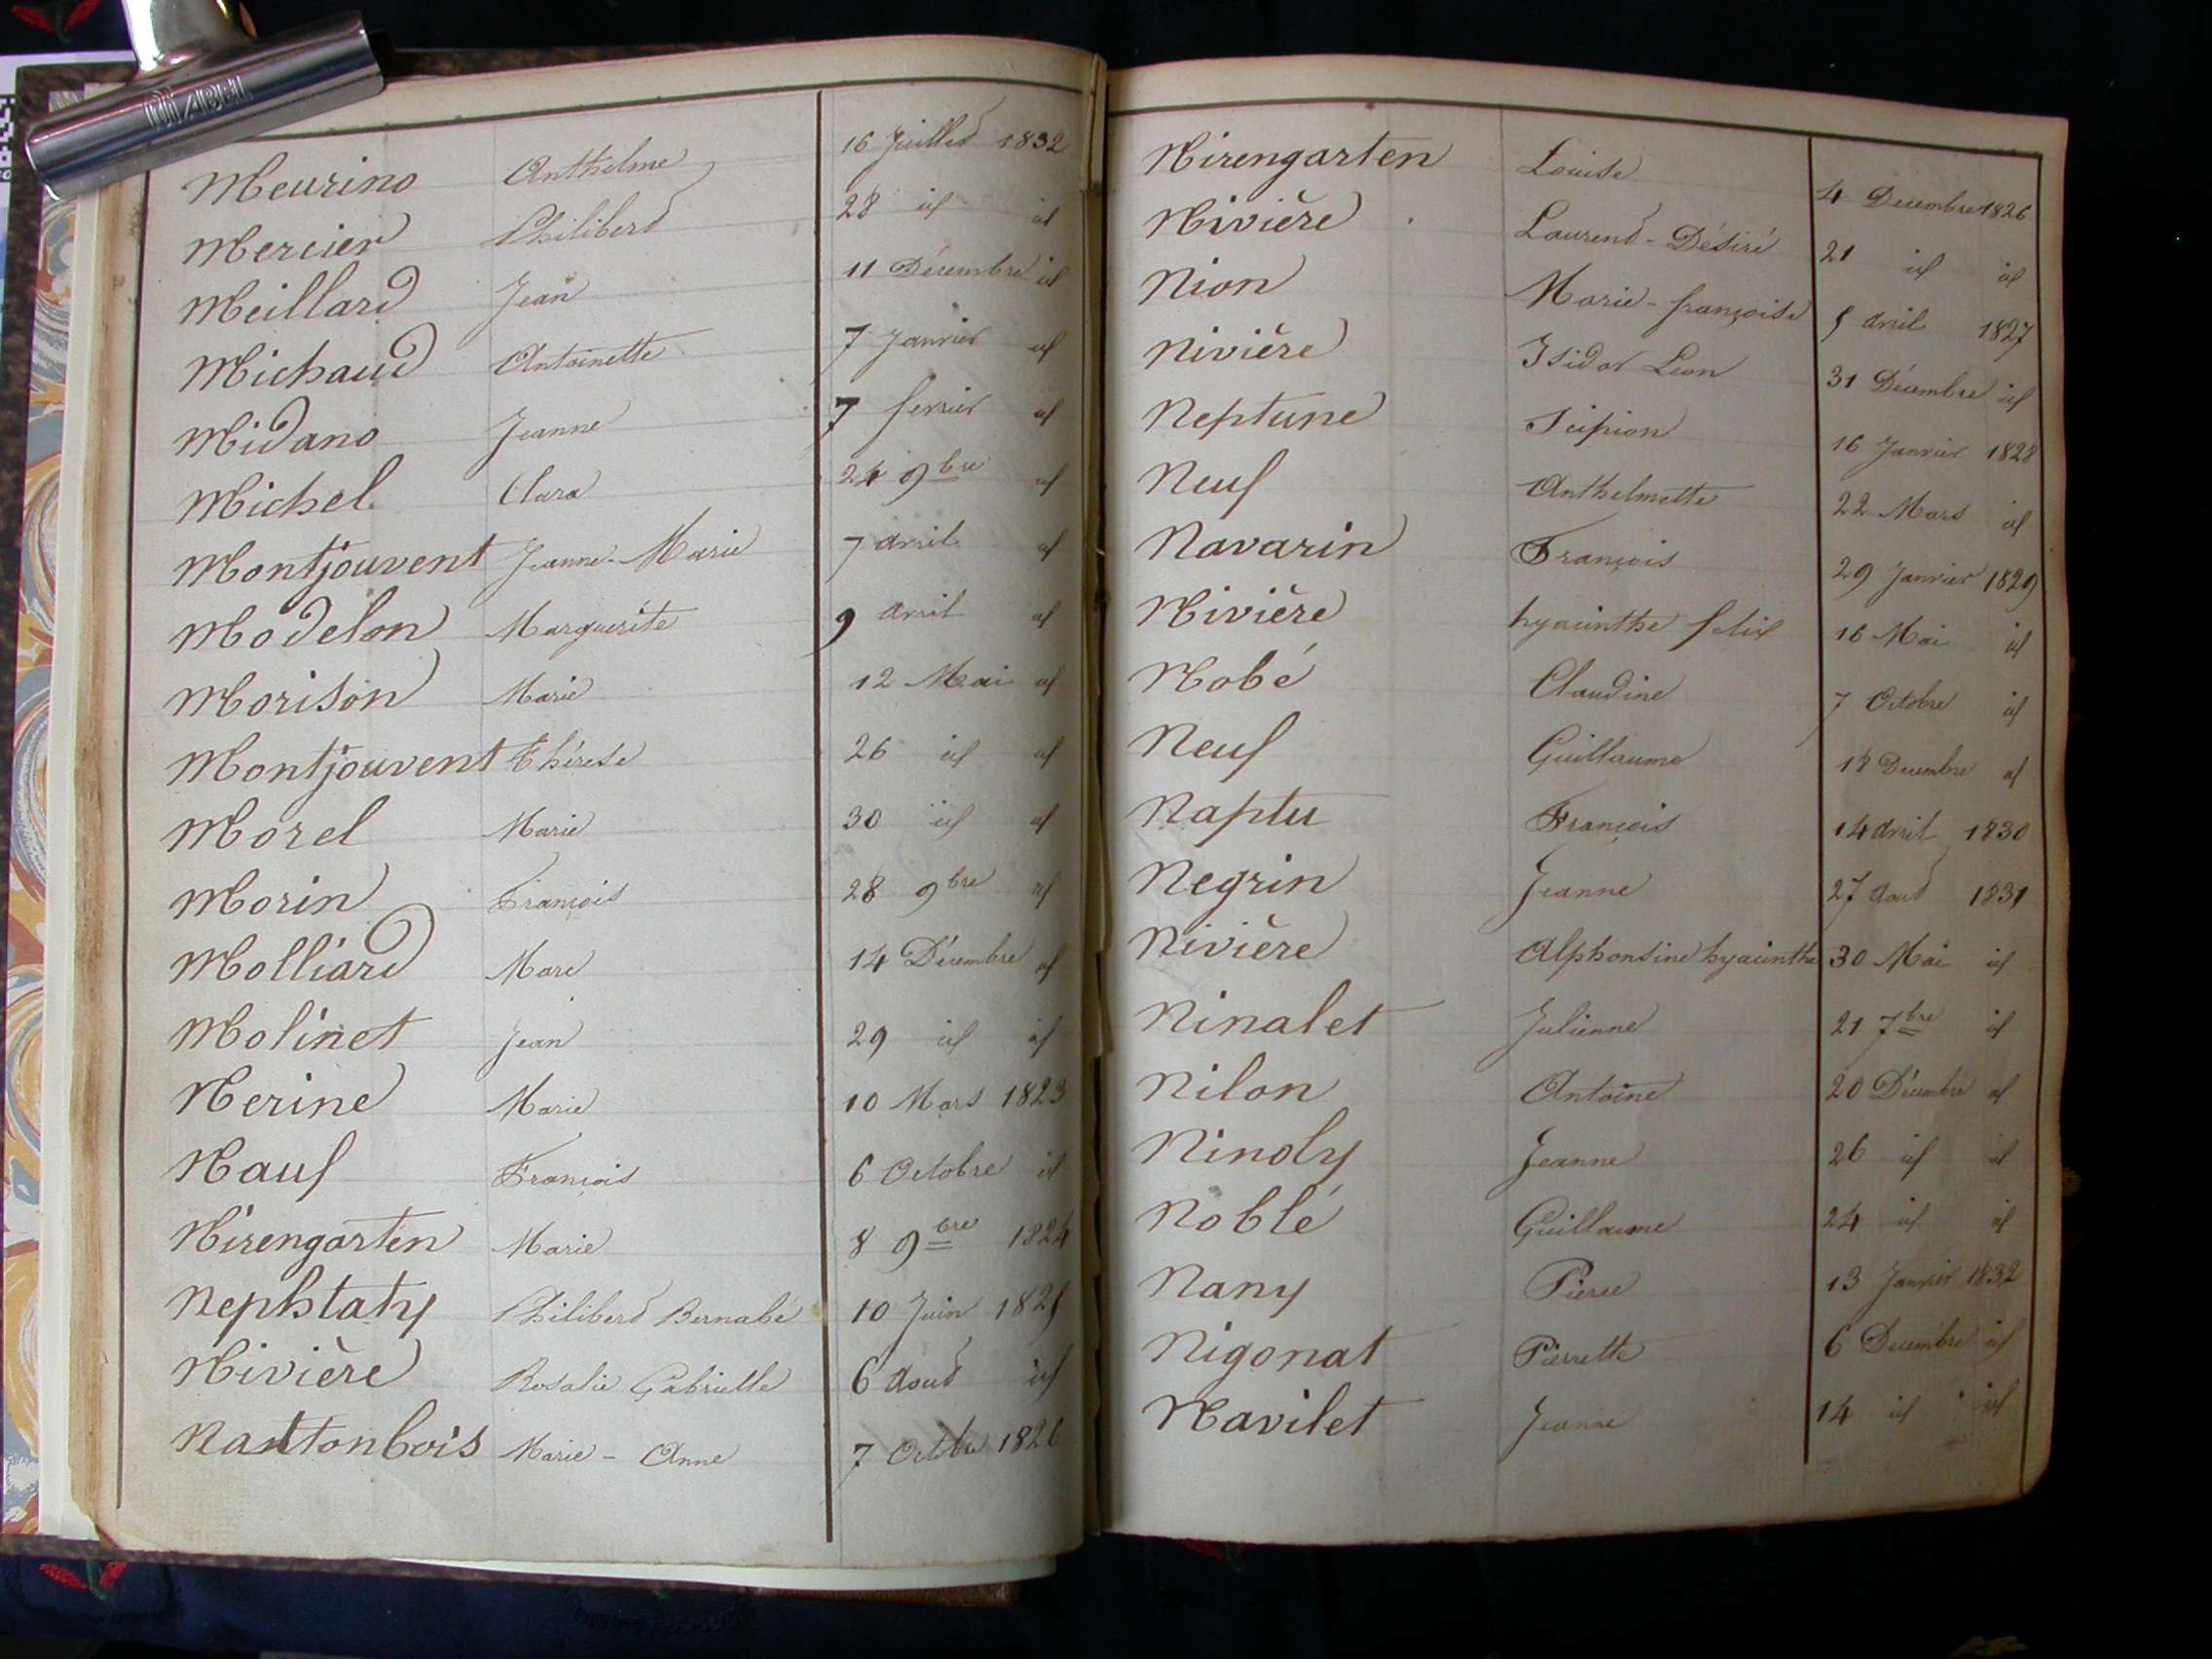 Meurino Anthelme 16 Juillet 1832
Mercier Philibert 28 id id
Meillard Jean 11 Décembre id
Michaud Antoinette 7 Janvier id
Midano Jeanne 7 fevrier id
Michel Clara 24 9bre id
Montjouvent Jeanne-Marie 7 avril id
Modelon Marguerite 9 avril id
Morison Marie 12 Mai id
Montjouvent thérese 26 id id
Morel Marie 30 id id
Morin François 28 9bre id
Molliard Marc 14 Décembre id
Molinet Jean 29 id id
Nerine Marie 10 Mars 1823
Nauf François 6 Octobre id
Nirengarten Marie 8 9bre 1824
Nephtaty Philibert Bernabé 10 Juin 1825
Nivière Rosalie Gabrielle 6 aout id
Nantonbois Marie - Anne 7 Octobre 1826
Nirengarten Louise 4 Decembre 1826
Nivière Laurent-Désiré 21 id id
Nion Marie-françoise 5 avril 1827
Nivière Isidor Leon 31 Décembre id
Neptune Scipion 16 Janvier 1828
Neuf Anthelmette 22 Mars id
Navarin François 29 Janvier 1829
Nivière hyacinthe felix 16 Mai id
Nobé Claudine 7 Octobre id
Neuf Guillaume 18 Decembre id
Naptu François 14 avril 1830
Negrin Jeanne 27 aout 1831
Nivière Alphonsine hyacinthe 30 Mai id
Ninalet Julienne 21 7bre id
Nilon Antoine 20 Décembre id
Nindy Jeanne 26 id id
Noblé Guillaume 24 id id
Nany Pierre 13 Janvier 1832
Nigonat Pierrette 6 Decembre id
Navilet Jeanne 14 id id